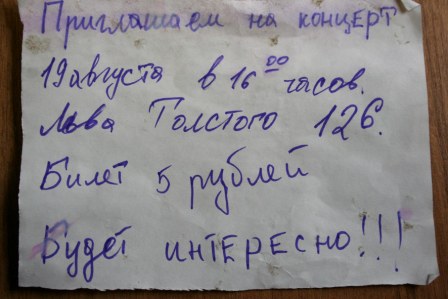 Приглашаем на концерт
19 августа в 16 00 часов.
Льва Толстого 126.
Билет 5 рублей
Будет интересно!!!